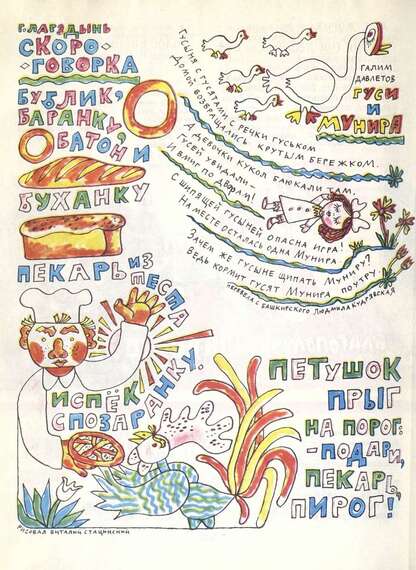 Г. ЛАГЗДЫНЬ
СКОРО-
ГОВОРКА
БУБЛИК,
БАРАНКУ,
БАТОН И
БУХАНКУ
ПЕКАРЬ ИЗ
ТЕСТА
ИСПЁК
СПОЗАРАНКУ.
ПЕТУШОК
ПРЫГ
НА ПОРОГ:
- ПОДАРИ,
ПЕКАРЬ,
ПИРОГ!
ГАЛИМ
ДАВЛЕТОВ
ГУСИ
И
МУНИРА
ГУСЫНЯ С ГУСЯТАМИ С РЕЧКИ ГУСЬКОМ
ДОМОЙ ВОЗВРАЩАЛИСЬ КРУТЫМ БЕРЕЖКОМ.
А ДЕВОЧКИ КУКОЛ БАЮКАЛИ ТАМ,
ГУСЕЙ УВИДАЛИ —
И ВМИГ ПО ДВОРАМ!
С ШИПЯЩЕЙ ГУСЫНЕЙ ОПАСНА ИГРА!
НА МЕСТЕ ОСТАЛАСЬ ОДНА МУНИРА
ЗАЧЕМ ЖЕ ГУСЫНЕ ЩИПАТЬ МУНИРУ?
ВЕДЬ КОРМИТ ГУСЯТ МУНИРА ПОУТРУ.
ПЕРЕВЕЛА С БАШКИРСКОГО ЛЮДМИЛА КУДРЯВСКАЯ
РИСОВАЛ ВИТАЛИЙ СТАЦИНСКИЙ